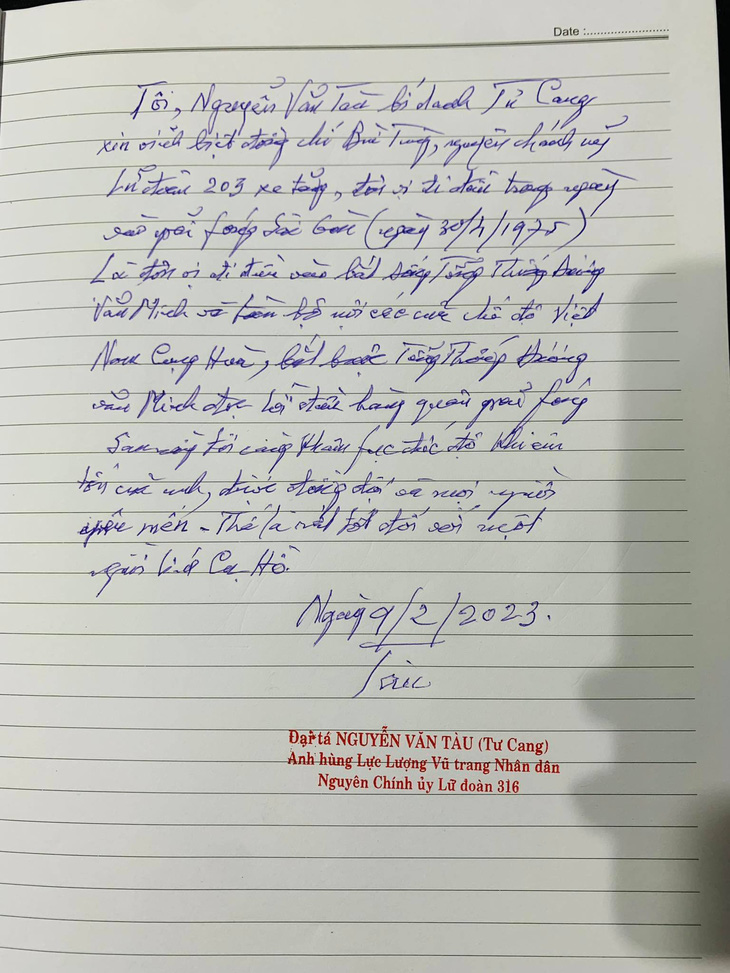 Date :
Tôi, Nguyễn Văn Tàu bí danh Tư Cang
xin vĩnh biệt đồng chí Bùi Tùng, nguyên chính uỷ
Lữ đoàn 203 xe tăng, đơn vị đi đầu trong ngày
vào giải fóng Sài Gòn (ngày 30/4/1975)
Là đơn vị đi đầu vào bắt sống Tổng Thống Dương
Văn Minh và toàn bộ nội các của chế độ Việt
Nam Cộng Hoà, bắt buộc Tổng Thống Dương
văn Minh đọc lời đầu hàng quân giải fóng
tôi càng khâm fục đức độ khiêm
tốn của anh, được đồng đội và mọi người
yêu mến - Thế là rất tốt đối với một
người lính Cụ Hồ.
Ngày 9/2/2023.
Đại tá NGUYỄN VĂN TÀU (Tư Cang)
Anh hùng Lực Lượng Vũ trang Nhân dân
Nguyên Chính ủy Lữ đoàn 316